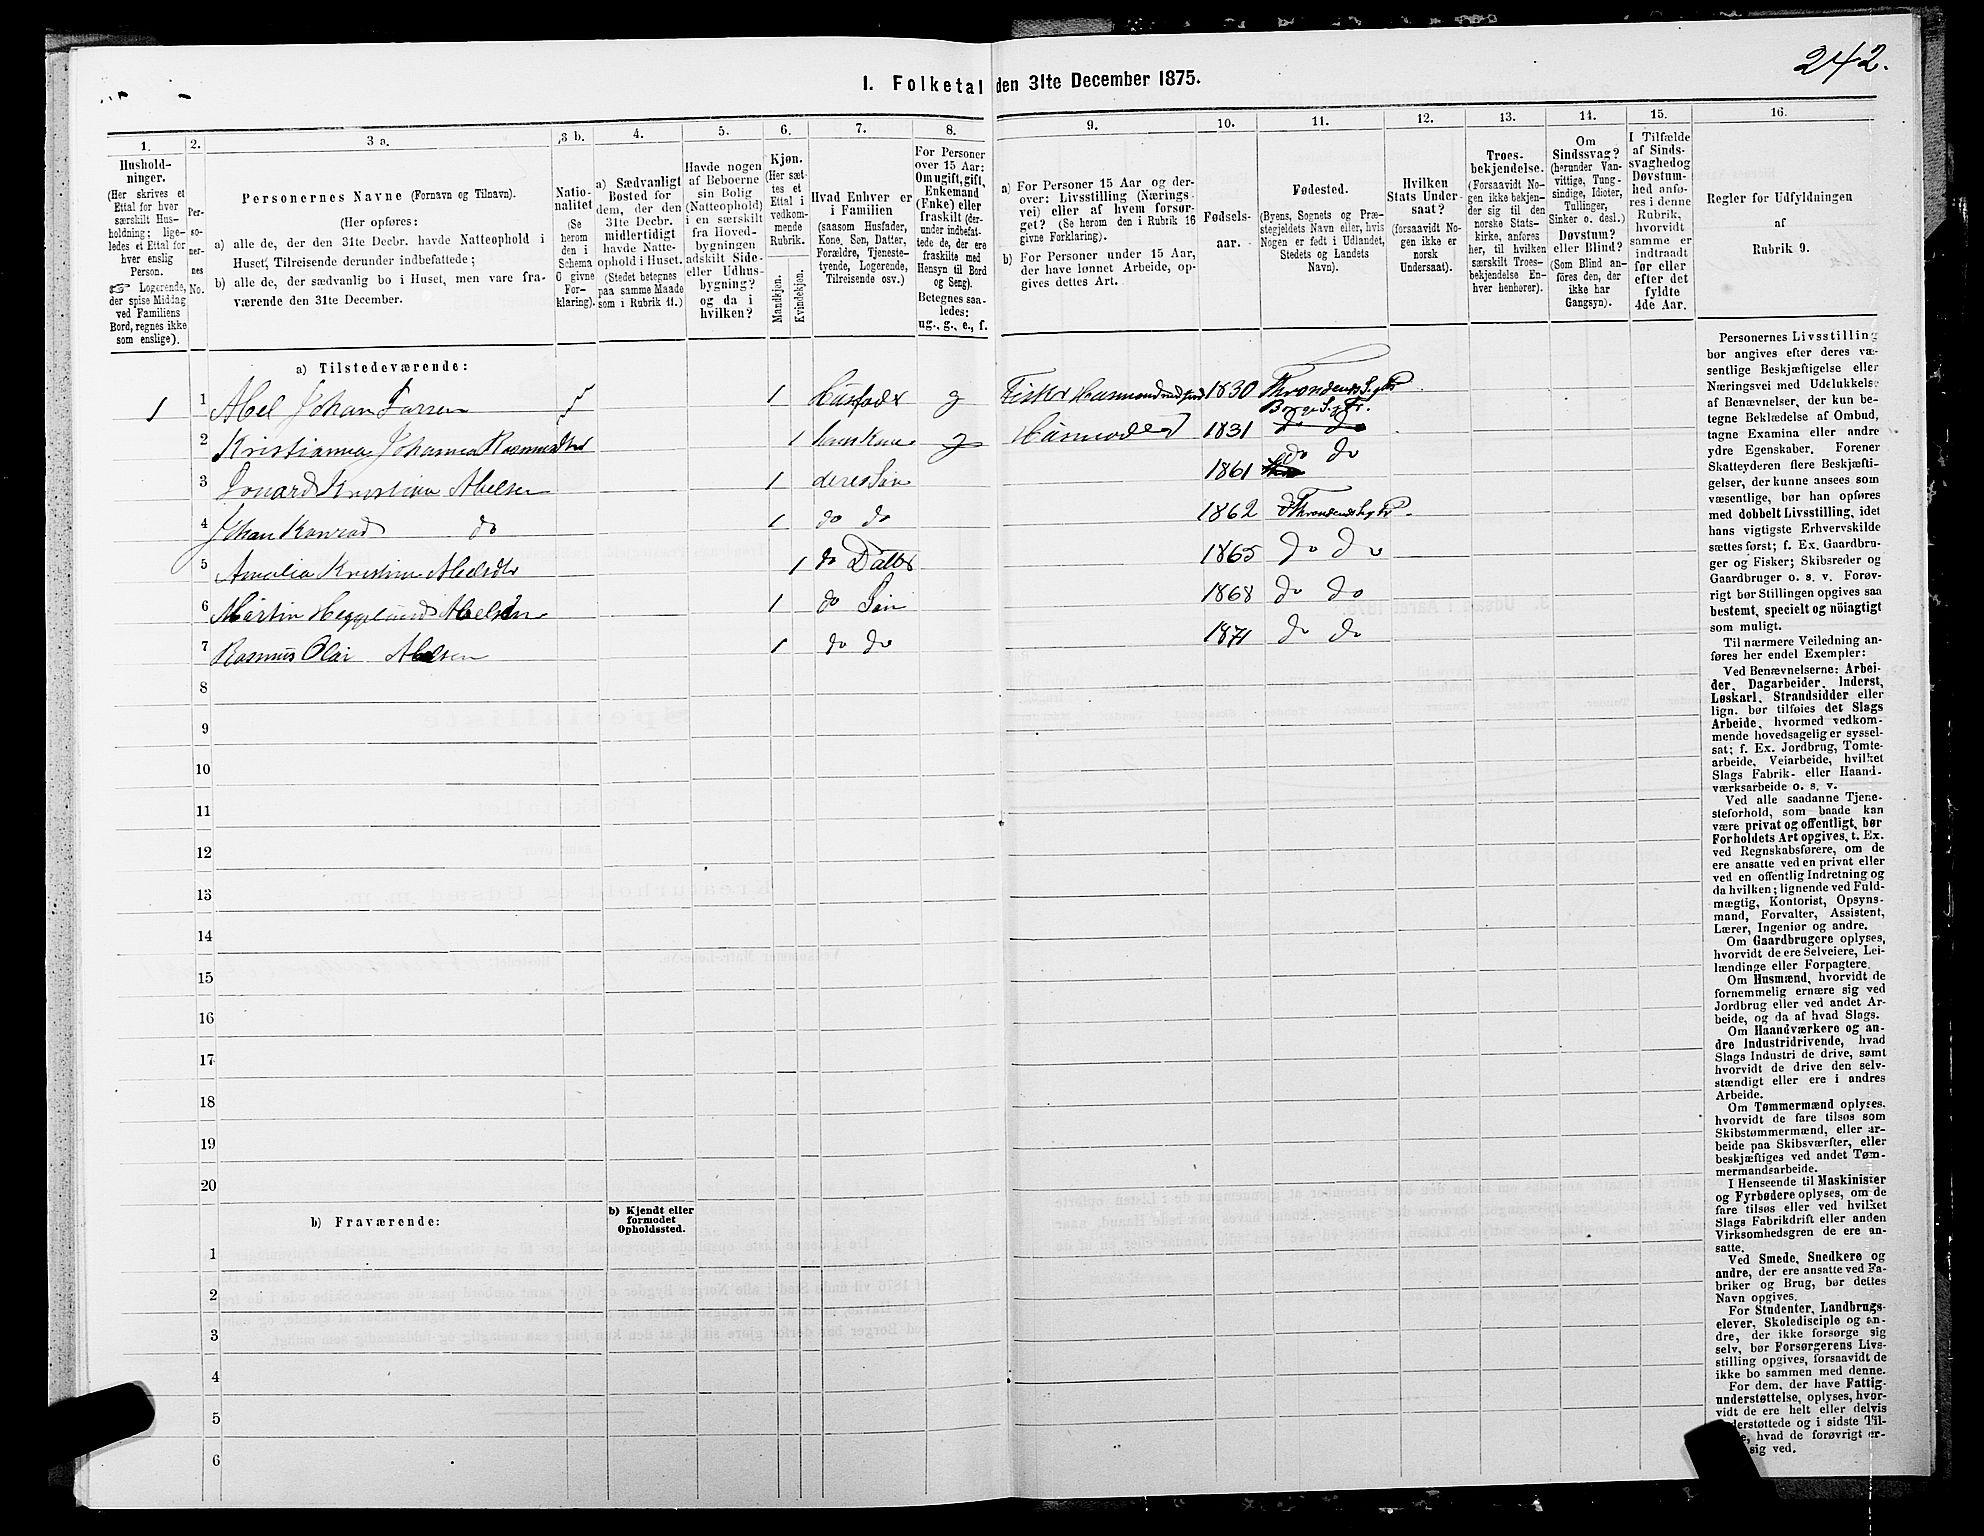 242.
I. Folketal den 31te December 1875.
1.
Hushold-
ninger.
(Her skrives et
Ettal for hver
særskilt Hus-
holdning; lige-
ledes et Ettal for
hver enslig
Person.
☞ Logerende,
der spise Middag
ved Familiens
Bord, regnes ikke
som enslige).
2.
Per-
so-
ner-
nes
No.
3 a.
Personernes Navne (Fornavn og Tilnavn).
(Her opføres:
a) alle de, der den 31te Decbr. havde Natteophold i
Huset, Tilreisende derunder indbefattede;
b) alle de, der sædvanlig bo i Huset, men vare fra-
værende den 31te December.
3 b.
Natio-
nalitet
(Se
herom
den i
Schema
O givne
For-
klaring).
4.
a) Sædvanligt
Bosted for
dem, der den
31te Decbr.
midlertidigt
havde Natte-
ophold i Huset.
(Stedet betegnes
paa samme Maade
som i Rubrik 11.)
5.
Havde nogen
af Beboerne
sin Bolig
(Natteophold)
i en særskilt
fra Hoved-
bygningen
adskilt Side-
eller Udhus-
bygning?
og da i
hvilken?
6.
Kjøn.
(Her sæt-
tes et
Ettal i
vedkom-
mende
Rubrik.
Mandkjøn.
Kvindekjøn.
7.
Hvad Enhver er
i Familien
(saasom Husfader,
Kone, Søn, Datter,
Forældre, Tjeneste-
tyende, Logerende,
Tilreisende osv.)
8.
For Personer
over 15 Aar:
Om ugift, gift,
Enkemand
(Enke) eller
fraskilt (der-
under indbefat-
tede de, der ere
fraskilte med
Hensyn til Bord
og Seng).
Betegnes saa-
ledes:
ug., g., e., f.
9.
a) For Personer 15 Aar og der-
over: Livsstilling (Nærings-
vei) eller af hvem forsør-
get? (Se herom den i Rubrik 16
givne Forklaring).
b) For Personer under 15 Aar,
der have lønnet Arbeide, op-
gives dettes Art.
10.
Fødsels-
aar.
11.
Fødested.
(Byens, Sognets og Præ-
stegjeldets Navn eller, hvis
Nogen er født i Udlandet,
Stedets og Landets
Navn).
12.
Hvilken
Stats Under-
saat?
(forsaavidt No-
gen ikke er
norsk
Undersaat).
13.
Troes-
bekjendelse.
(Forsaavidt No-
gen ikke bekjen-
der sig til den
norske Stats-
kirke, anføres
her, til hvilken
særskilt Troes-
bekjendelse En-
hver henhører).
14.
Om
Sindssvag?
(herunder Van-
vittige, Tung-
sindige, Idioter,
Tullinger,
Sinker o. desl.)
Døvstum?
eller Blind?
(Som Blind an-
føres den, der
ikke har
Gangsyn).
15.
I Tilfælde
af Sinds-
svaghed og
Døvstum-
hed anfø-
res i denne
Rubrik,
hvorvidt
samme er
indtraadt
før eller
efter det
fyldte
4de Aar.
16.
Regler for Udfyldningen
af
Rubrik 9.
a) Tilstedeværende:
1 1 Abel Johan Larsen 1 Husfadr g Fisker 1830
2 Kristianna Johanna Rasmusdtr 1 hans Kone g 1831 do do
3 Kristian Abelsen 1 deres Søn 1861 do do
4 Johan Konrad do 1 do do 1862
5 Amalia Kristine Abelsdtr 1 do Dattr 1865 do do
6 Martin Hegglund Abelsen 1 do Søn 1868 do do
7 Rasmus Olai Abelsen 1 do do 1871 do do
8
9
10
11
12
13
14
15
16
17
18
19
20
b) Fraværende:
b) Kjendt eller
formodet
Opholdssted.
1
2
3
4
5
6
Personernes Livsstilling
bør angives efter deres væ-
sentlige Beskjæftigelse eller
Næringsvei med Udelukkelse
af Benævnelser, der kun be-
tegne Beklædelse af Ombud,
tagne Examina eller andre
ydre Egenskaber. Forener
Skatteyderen flere Beskjæfti-
gelser, der kunne ansees som
væsentlige, bør han opføres
med dobbelt Livsstilling, idet
hans vigtigste Erhvervskilde
sættes først; f. Ex. Gaardbru-
ger og Fisker; Skibsreder og
Gaardbruger o. s. v. Forøv-
rigt bør Stillingen opgives saa
bestemt, specielt og nöiagtigt
som muligt.
Til nærmere Veiledning an-
føres her endel Exempler:
Ved Benævnelserne: Arbei-
der, Dagarbeider, Inderst,
Løskarl, Strandsidder eller
lign. bør tilføies det Slags
Arbeide, hvormed vedkom-
mende hovedsagelig er syssel-
sat; f. Ex. Jordbrug, Tomte-
arbeide, Veiarbeide, hvilket
Slags Fabrik- eller Haand-
værksarbeide o. s. v.
Ved alle saadanne Tjene-
steforhold, som baade kan
være privat og offentligt, bør
Forholdets Art opgives, t. Ex.
ved Regnskabsførere, om de
ere ansatte ved en privat eller
ved en offentlig Indretning og
da hvilken; lignende ved Fuld-
mægtig, Kontorist, Opsyns-
mand, Forvalter, Assistent,
Lærer, Ingeniør og andre.
Om Gaardbrugere oplyses,
hvorvidt de ere Selveiere, Lei-
lændinge eller Forpagtere.
Om Husmænd, hvorvidt de
fornemmelig ernære sig ved
Jordbrug eller ved andet Ar-
beide, og da af hvad Slags.
Om Haandværkere og an-
dre Industridrivende, hvad
Slags Industri de drive, samt
hvorvidt de drive den selv-
stændigt eller ere i andres
Arbeide.
Om Tømmermænd oplyses,
hvorvidt de fare tilsøs som
Skibstømmermænd, eller ar-
beide paa Skibsværfter, eller
beskjæftiges ved andet Tøm-
mermandsarbeide.
I Henseende til Maskinister
og Fyrbødere oplyses, om de
fare tilsøs eller ved hvilket
Slags Fabrikdrift eller anden
Virksomhedsgren de ere an-
satte.
Ved Smede, Snedkere og
andre, der ere ansatte ved Fa-
briker og Brug, bør dettes
Navn opgives.
For Studenter, Landbrugs-
elever, Skoledisciple og an-
dre, der ikke forsørge sig
selv, bør Forsørgerens Livs-
stilling opgives, forsaavidt de
ikke bo sammen med denne.
For dem, der have Fattig-
understøttelse, oplyses, hvor-
vidt de ere helt eller delvis
understøttede og i sidste Til-
hvad de forøvrigt er-
sig ved.